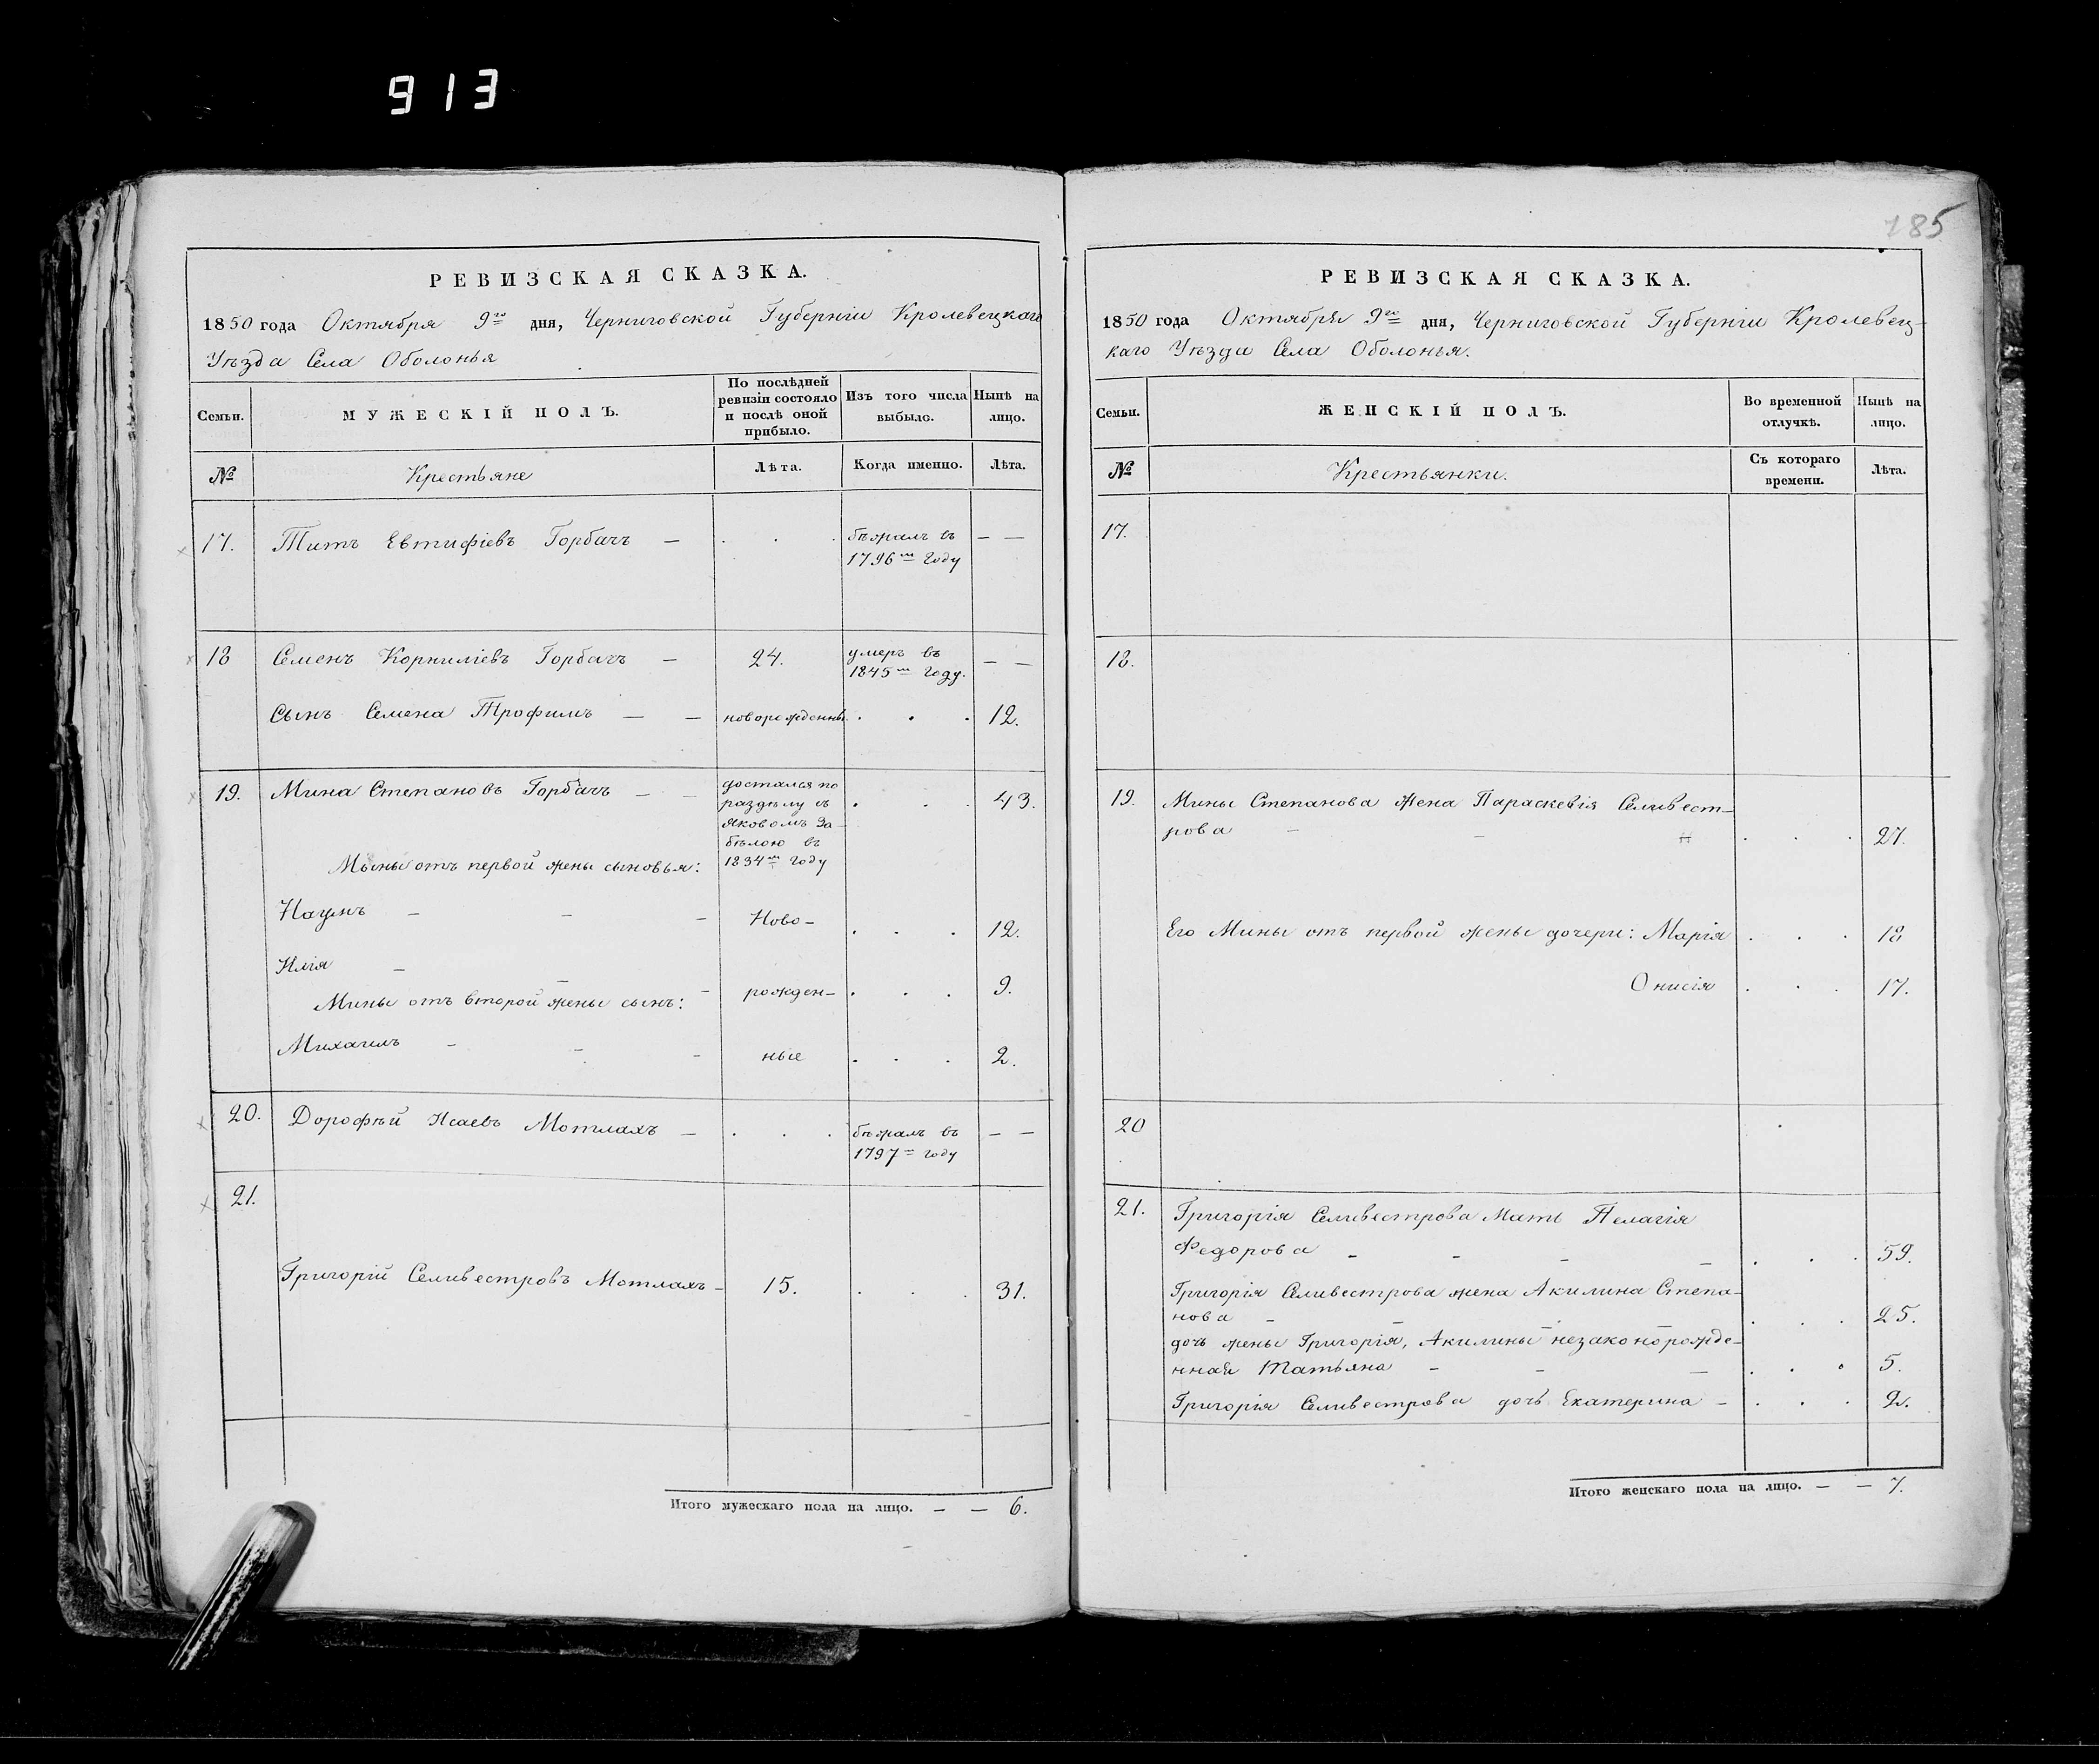 913
РЕВИЗСКАЯ СКАЗКА.
1850 года Октября 9го дня, Черниговской Губерніи Кролевецкаго
Уѣзда Села Оболонья
Семьи.
МУЖЕСКІЙ ПОЛЪ.
По послѣдней
ревизіи состояло
и послѣ оной
прибыло.
Изъ того числа
выбыло.
Нынѣ на
лицо.
№
Крестьяне
Лѣта.
Когда именно.
Лѣта.
17. Титъ Евтифіевъ Горбачъ — . . . бѣжалъ въ — —
1796м году
18 Семенъ Корниліевъ Горбачъ — 24. умеръ въ — —
1845м году.
Сынъ Семена Трофимъ — — новорожденны. . . . 12.
19. Мина Степановъ Горбачъ — — достался по . . . 43.
раздѣлу съ
Яковомъ За-
бѣлою въ
Мины отъ первой жены сыновья: 1834м году
Наумъ - - - Ново- . . . 12.
Илія - - -
рожден- . . . 9.
Мины отъ второй жены сынъ:
Михаилъ - - - ные . . . 2.
20. Дорофѣй Исаевъ Мотлахъ — . . . бѣжалъ въ — —
1797м году
21.
Григорій Селивестровъ Мотлахъ - 15. . . . 31.
Итого мужескаго пола на лицо. — — 6.
185
РЕВИЗСКАЯ СКАЗКА.
1850 года Октября 9го дня, Черниговской Губерніи Кролевец-
каго Уѣзда Села Оболонья.
Семьи.
ЖЕНСКІЙ ПОЛЪ.
Во временной
отлучкѣ.
Нынѣ на
лицо.
№
Крестьянки.
Съ котораго
времени.
Лѣта.
17.
18.
19. Мины Степанова жена Параскевія Селивест-
рова - - . . . 27.
Его Мины отъ первой жены дочери: Марія . . . 18
Онисія . . . 17.
20
21. Григорія Селивестрова Мать Пелагія
Федорова - - - — . . . 59.
Григорія Селивестрова жена Акилина Степа-
нова - - - — . . . 25.
дочь жены Григорія, Акилины незаконорожде-
нная Татьяна - - — . . . 5.
Григорія Селивестрова дочь Екатерина - . . . 2.
Итого женскаго пола на лицо. — — 7.